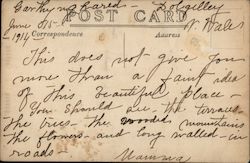 Garthyngharad - Dolgelley
June 15 - N Wales
1914
POST CARD
Correspondence Address
This does not give you
more than a faint idea
of this beautiful place -
You should see the terrace
the trees - the woods mountains
the flowers - and long walled - in
roads - Mamma